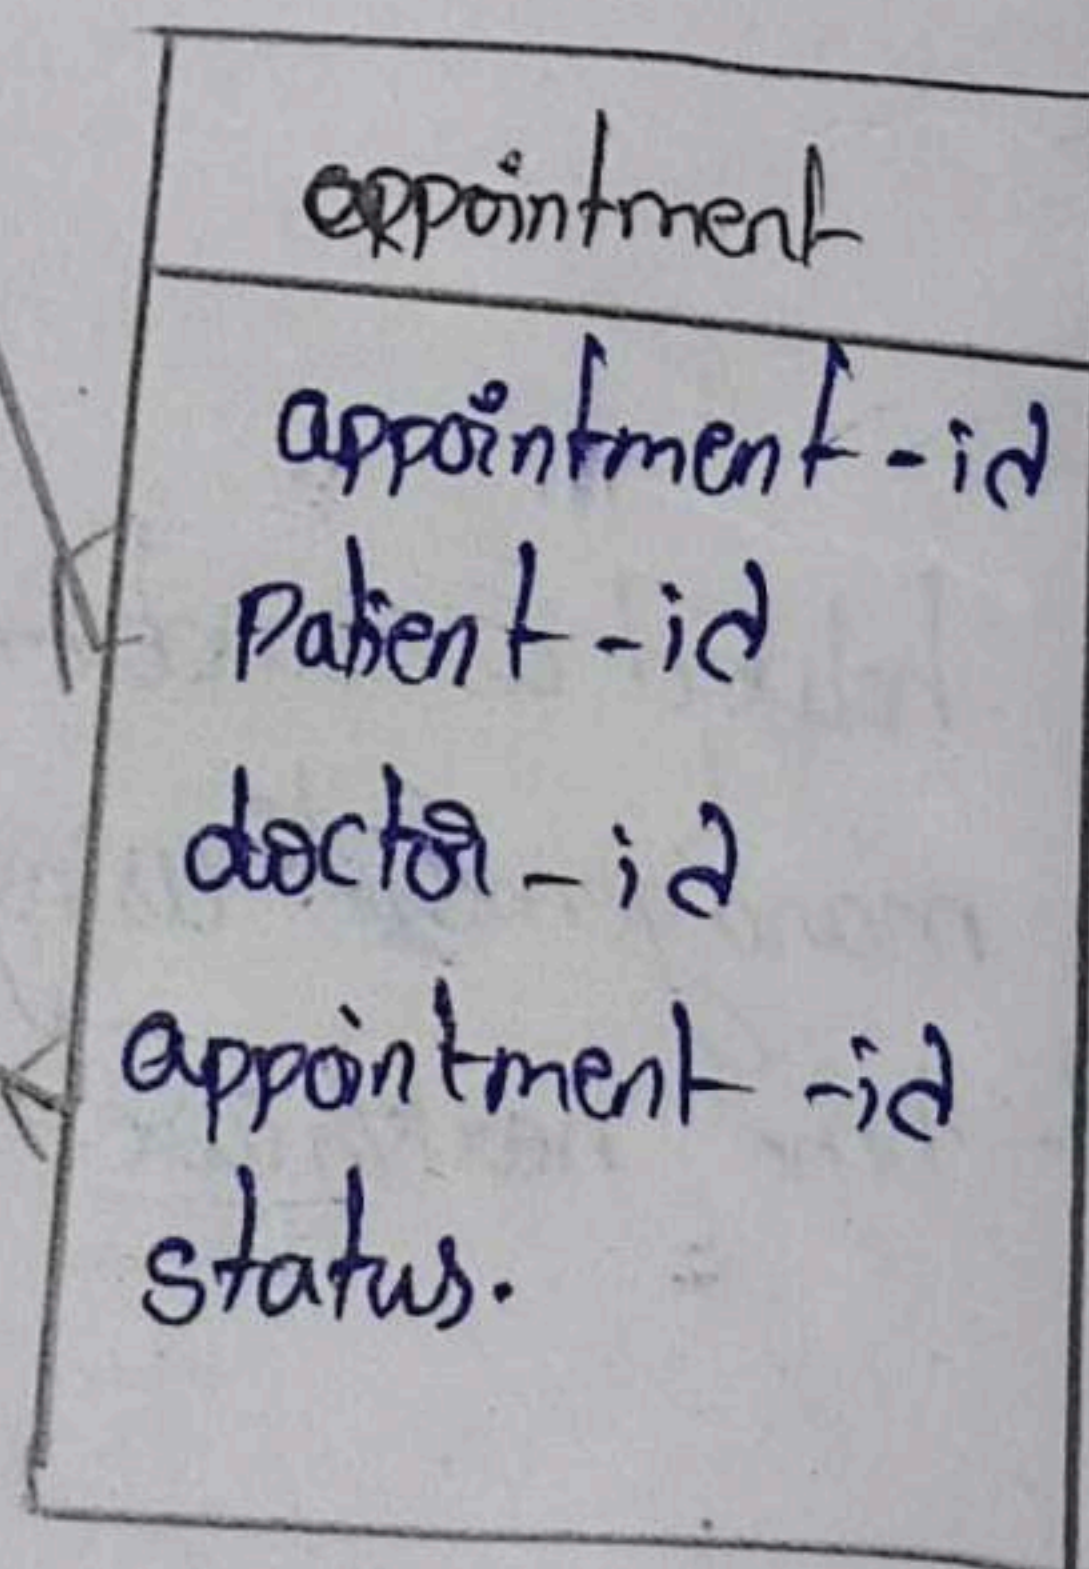 appointment
appointment-id
Patient-id
doctor-id
appointment-id
status.